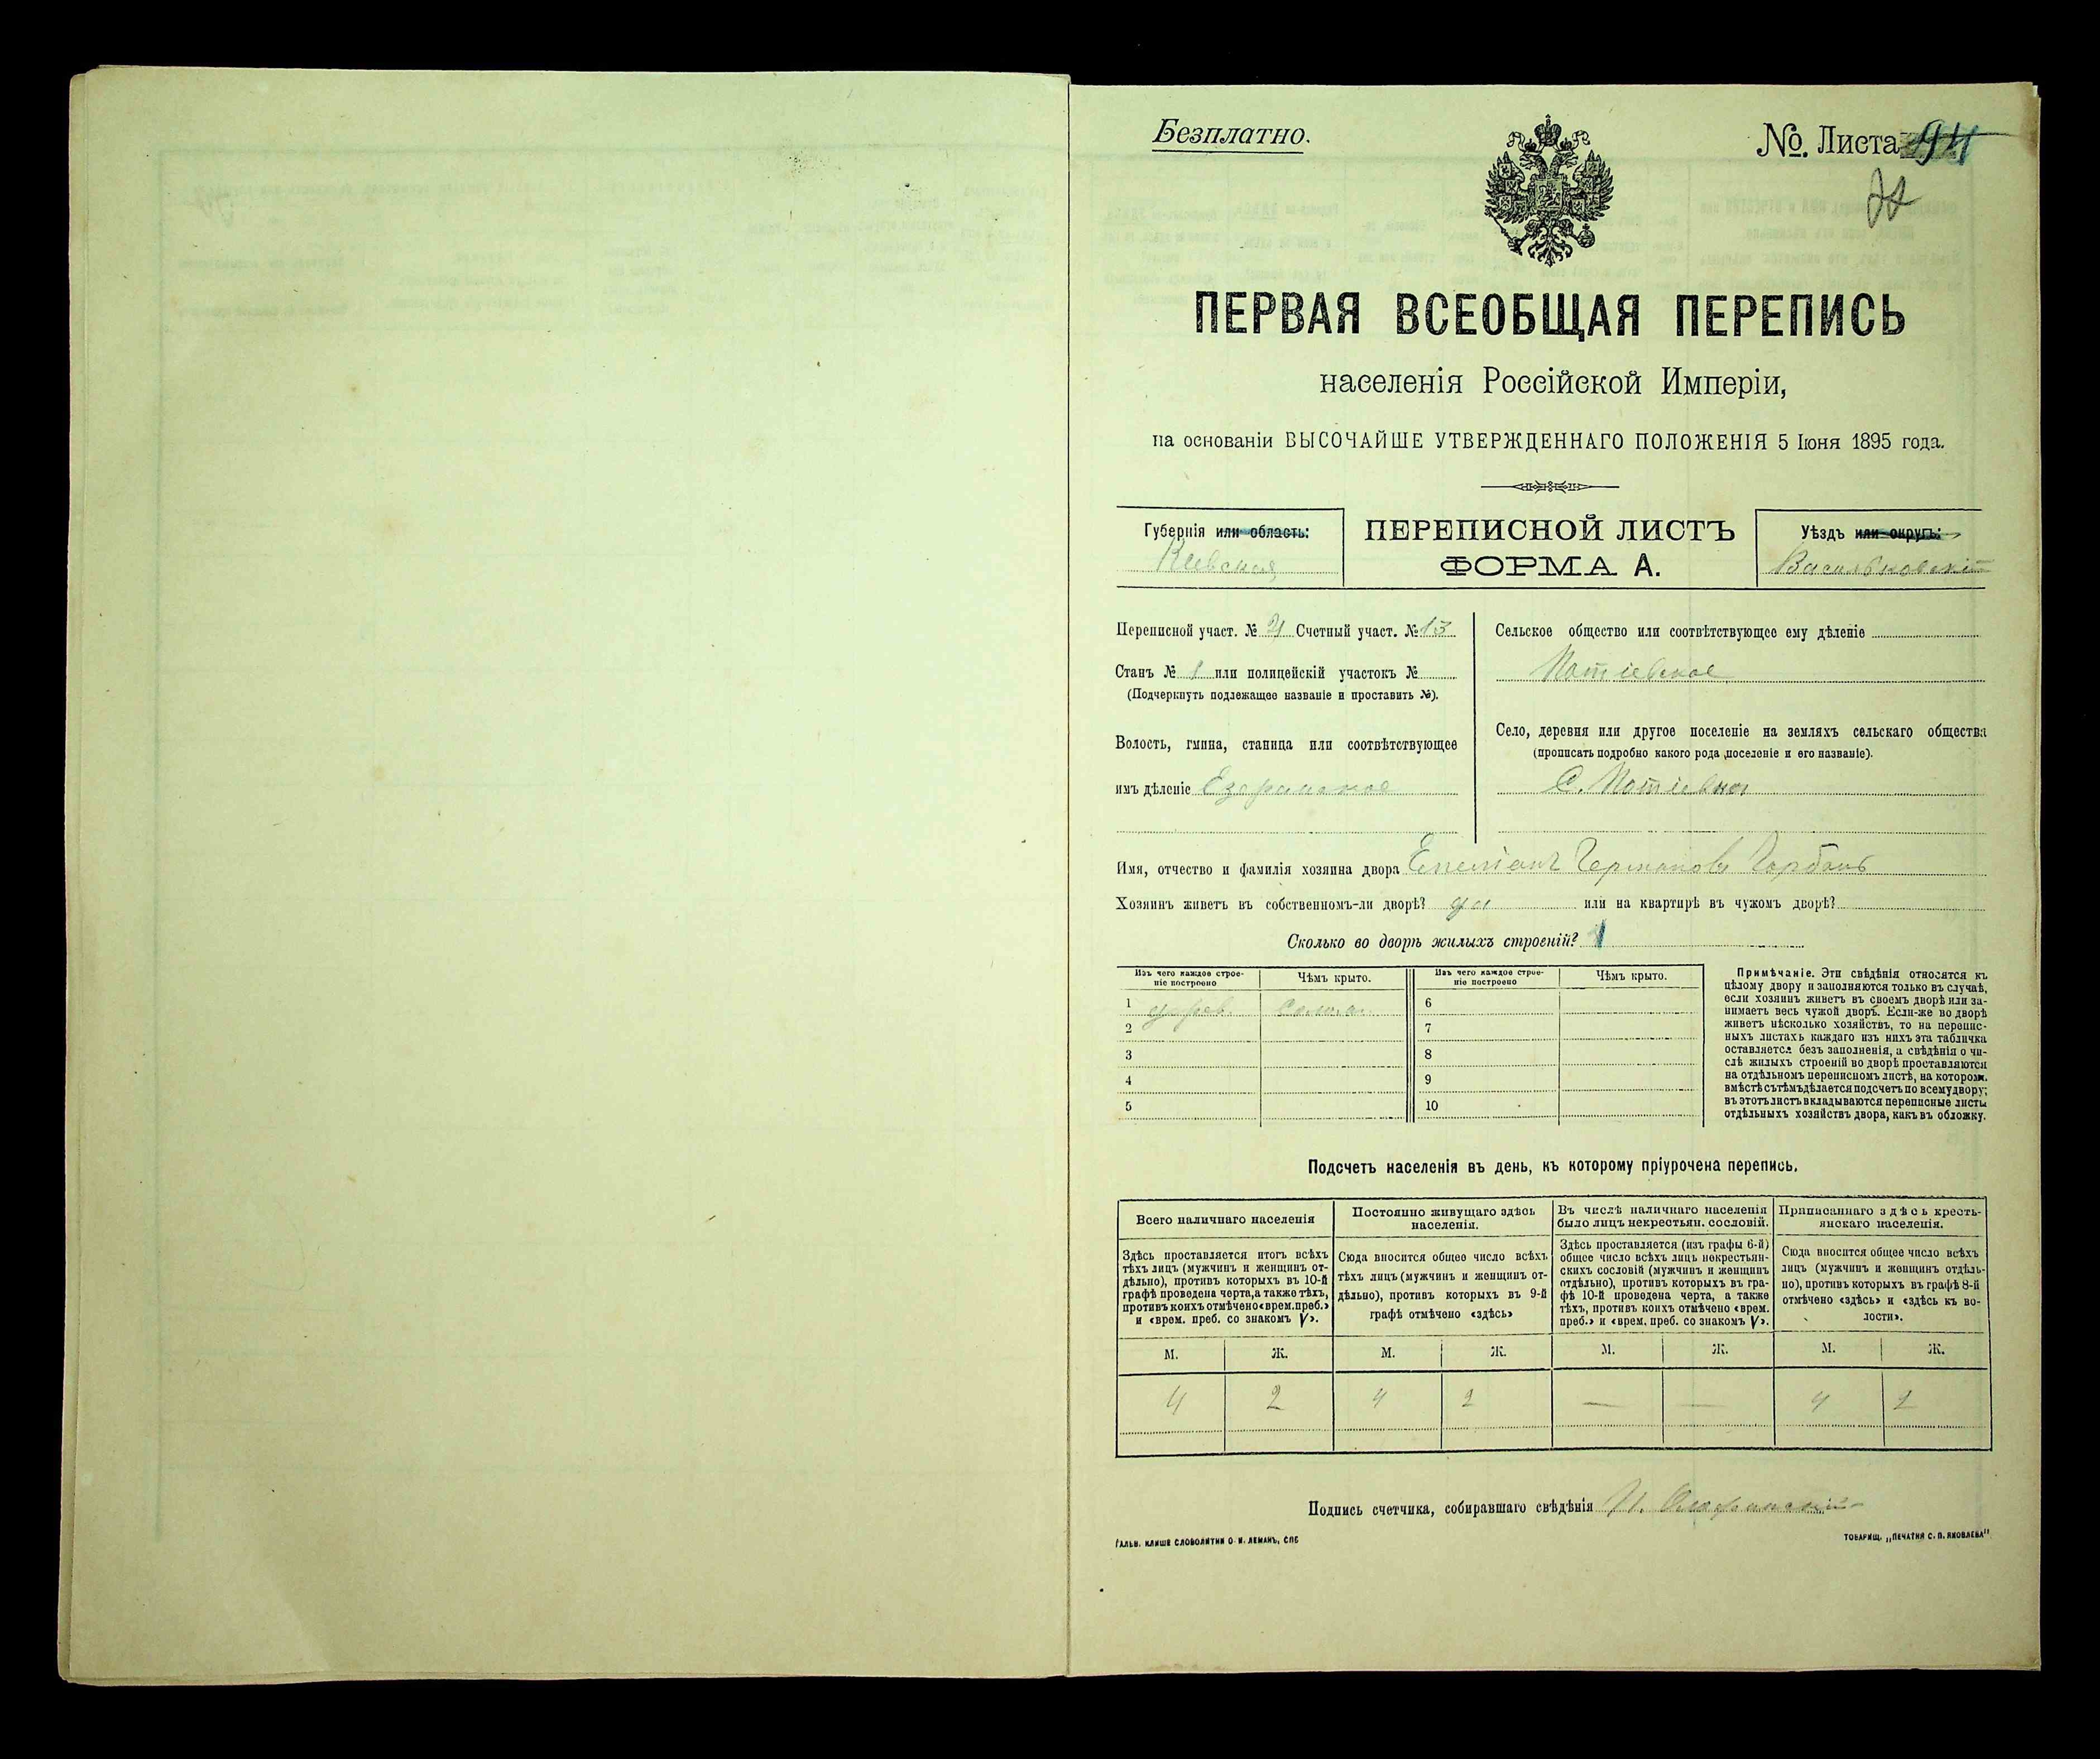 Безплатно.
№. Листа 94
ПЕРВАЯ ВСЕОБЩАЯ ПЕРЕПИСЬ
населенія Россійской Имперіи,
на основаніи ВЫСОЧАЙШЕ УТВЕРЖДЕННАГО ПОЛОЖЕНІЯ 5 Іюня 1895 года.
Губернія или область:
Кіевская
ПЕРЕПИСНОЙ ЛИСТЪ
ФОРМА А.
Уѣздъ или округъ:
Васильковскій
Переписной участ. № 4 Счетный участ. № 13
Станъ № 1 или полицейскій участокъ №
(Подчеркнуть подлежащее названіе и проставить №).
Волость, гмина, станица или соотвѣтствующее
имъ дѣленіе Езерянское
Сельское общество или соотвѣтствующее ему дѣленіе
Потіевское
Село, деревня или другое поселеніе на земляхъ сельскаго общества
(прописать подробно какого рода поселеніе и его названіе).
С. Потіевка
Имя, отчество и фамилія хозяина двора Емеліанъ Германовъ Горбань
Хозяинъ живетъ въ собственномъ-ли дворѣ? да или на квартирѣ въ чужомъ дворѣ?
Сколько во дворѣ жилыхъ строеній? 1
Изъ чего каждое строеніе построено
Чѣмъ крыто.
Изъ чего каждое строеніе построено
Чѣмъ крыто.
1 дерев. солома 6
2 7
3 8
4 9
5 10
Примѣчаніе. Эти свѣдѣнія относятся къ
цѣлому двору и заполняются только въ случаѣ,
если хозяинъ живетъ въ своемъ дворѣ или за-
нимаетъ весь чужой дворъ. Если-же во дворѣ
живетъ нѣсколько хозяйствъ, то на перепис-
ныхъ листахъ каждаго изъ нихъ эта табличка
оставляется безъ заполненія, а свѣдѣнія о чи-
слѣ жилыхъ строеній во дворѣ проставляются
на отдѣльномъ переписномъ листѣ, на которомъ
вмѣстѣ съ тѣмъ дѣлается подсчетъ по всему двору;
въ этотъ листъ вкладываются переписные листы
отдѣльныхъ хозяйствъ двора, какъ въ обложку.
Подсчетъ населенія въ день, къ которому пріурочена перепись.
Всего наличнаго населенія
Здѣсь проставляется итогъ всѣхъ
тѣхъ лицъ (мужчинъ и женщинъ от-
дѣльно), противъ которыхъ въ 10-й
графѣ проведена черта, а также тѣхъ,
противъ коихъ отмѣчено «врем. преб.»
и «врем. преб. со знакомъ V».
Постоянно живущаго здѣсь
населенія.
Сюда вносится общее число всѣхъ
тѣхъ лицъ (мужчинъ и женщинъ от-
дѣльно), противъ которыхъ въ 9-й
графѣ отмѣчено «здѣсь»
Въ числѣ наличнаго населенія
было лицъ некрестьян. сословій.
Здѣсь проставляется (изъ графы 6-й)
общее число всѣхъ лицъ некрестьян-
скихъ сословій (мужчинъ и женщинъ
отдѣльно), противъ которыхъ въ гра-
фѣ 10-й проведена черта, а также
тѣхъ, противъ коихъ отмѣчено «врем.
преб.» и «врем. преб. со знакомъ V».
Приписаннаго здѣсь кресть-
янскаго населенія.
Сюда вносится общее число всѣхъ
лицъ (мужчинъ и женщинъ отдѣль-
но), противъ которыхъ въ графѣ 8-й
отмѣчено «здѣсь» и «здѣсь къ во-
лости».
М. Ж. М. Ж. М. Ж. М. Ж.
4 2 4 2 — — 4 2
Подпись счетчика, собиравшаго свѣдѣнія
ГАЛЬВ. КЛИШЕ СЛОВОЛИТНИ О. И. ЛЕМАНЪ, СПБ
ТОВАРИЩ. „ПЕЧАТНЯ С. П. ЯКОВЛЕВА"